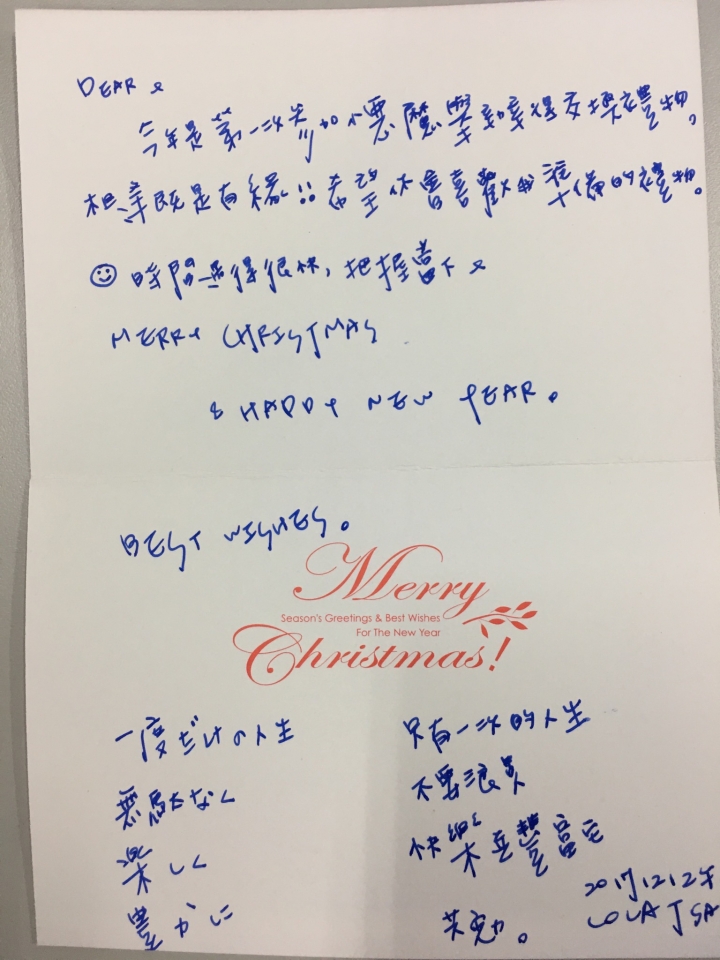 DEAR
今年是第一次參加小惡魔聖誕交換禮物,
相逢既是有緣!!希望你會喜歡我準備的禮物。
時間過得很快,把握當下
MERRY CHRISTMAS
& HAPPY NEW YEAR.
BEST WISHES.
Merry
Season's Greetings & Best Wishes
For The New Year
Christmas!
一度だけの人生
無駄なく
楽しく
豊かに
只有一次的人生
不要浪費
快樂且豐富它
共勉。
2017.12.24
LOLA TSA